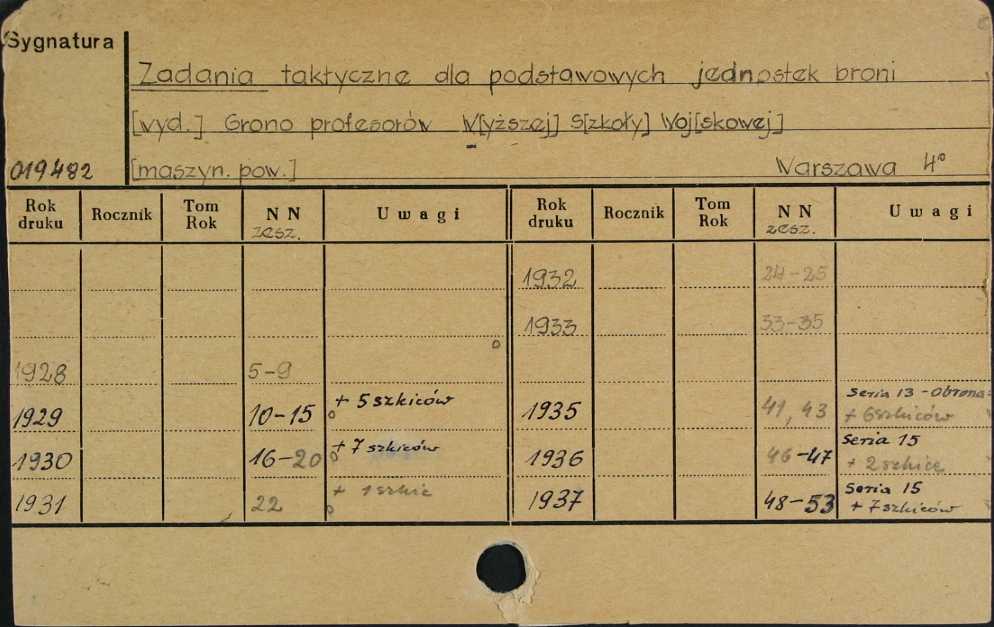 Sygnatura
Zadania taktyczne dla podstawowych jednostek broni
[wyd.] Grono profesorów W[yższej] S[zkoły] Woj[skowej]
019482 [maszyn. pow.] Warszawa 4°
Rok druku Rocznik Tom Rok NN zesz. Uwagi Rok druku Rocznik Tom Rok NN zesz. Uwagi
1932 24-25
1933 33-35
1928 5-9
1929 10-15 + 5 szkiców 1935 41, 43 Seria 13 - Obrona + 6 szkiców
1930 16-20 + 7 szkiców 1936 46-47 Seria 15 + 2 szkice
1931 22 + 1 szkic 1937 48-53 Seria 15 + 7 szkiców